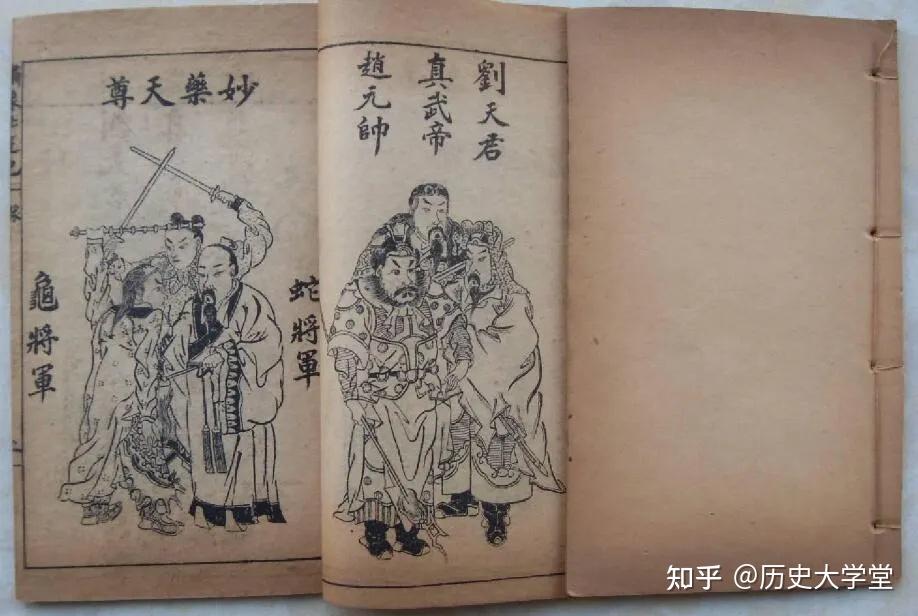 劉天君
真武帝
趙元帥
妙藥天尊
蛇將軍
龜將軍
知乎 @历史大学堂